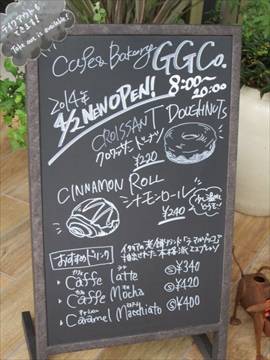 テイクアウトも
できます!
Take out is available!
Cafe & Bakery GGCo.
2014年
4/2 NEW OPEN! 8:00〜
20:00
CROISSANT DOUGHNUTS
クロワッサンドーナツ
¥220
CINNAMON ROLL
シナモンロール
¥240
おすすめドリンク
イタリアの老舗ブランド「ラ・マルゾッコ」で
抽出させた本格派エスプレッソ
カフェ ラテ
・Caffe Latte Ⓢ¥340
カフェ モカ
・Caffe Mocha Ⓢ¥420
キャラメル マキアート
・Caramel Macchiato Ⓢ¥400